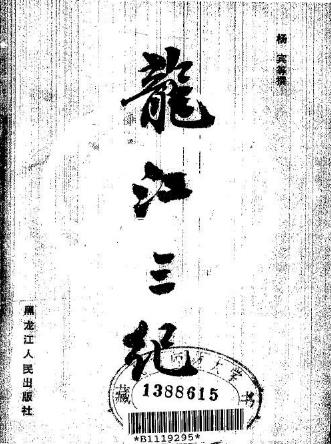 杨宾等撰
龍江三紀
黑龙江人民出版社
师范大学
藏书
1388615
*B1119295*